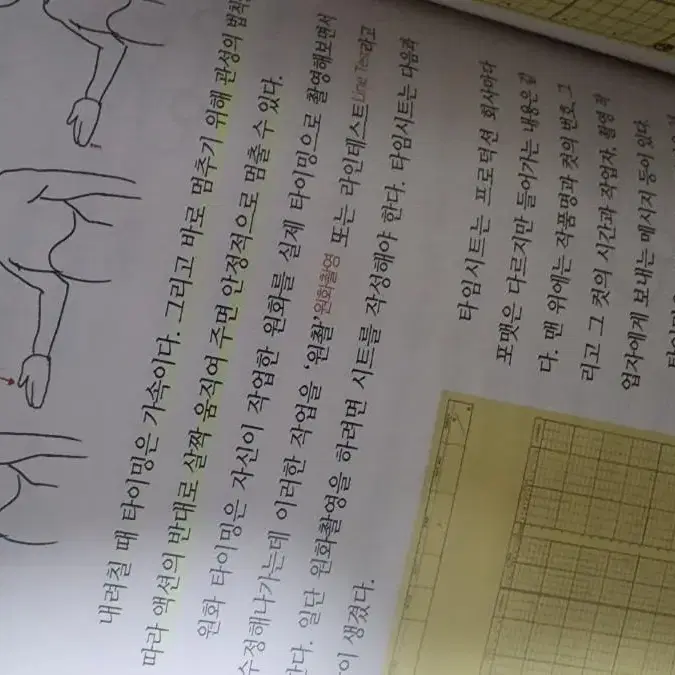 내려칠 때 타이밍은 가속이다. 그리고 바로 멈추기 위해 관성의 법칙
따라 액션의 반대로 살짝 움직여 주면 안정적으로 멈출 수 있다.
원화 타이밍은 자신이 작업한 원화를 실제 타이밍으로 촬영해보면서
수정해나가는데 이러한 작업을 '원촬'원화촬영 또는 라인테스트Line Test라고
한다. 일단 원화촬영을 하려면 시트를 작성해야 한다. 타임시트는 다음과
이 생겼다.
타임시트는 프로덕션 회사마다
포맷은 다르지만 들어가는 내용은 같
다. 맨 위에는 작품명과 컷의 번호, 그
리고 그 컷의 시간과 작업자, 촬영
업자에게 보내는 메시지 등이 있다.